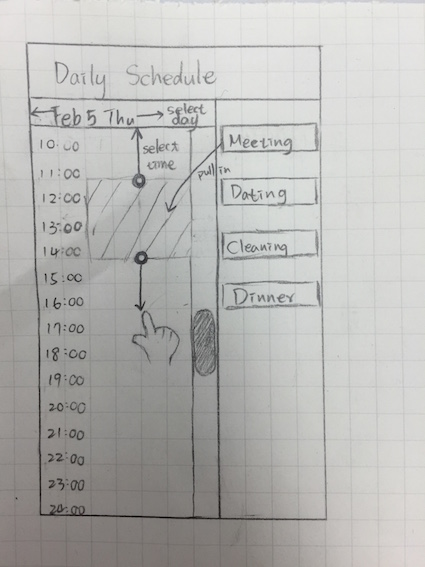 Daily Schedule
Feb 5 Thu
select
day
10:00
select
time
11:00
12:00
13:00
14:00
15:00
16:00
17:00
18:00
19:00
20:00
21:00
22:00
23:00
24:00
pull in
Meeting
Dating
Cleaning
Dinner